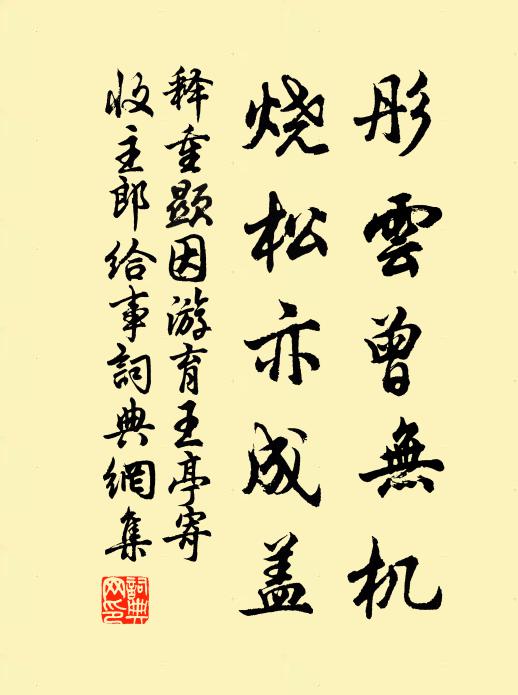 彤雲曾無机
烧松亦成盖
释重顯因游育王亭寄
收主郎给事詞典網集
詞典网印